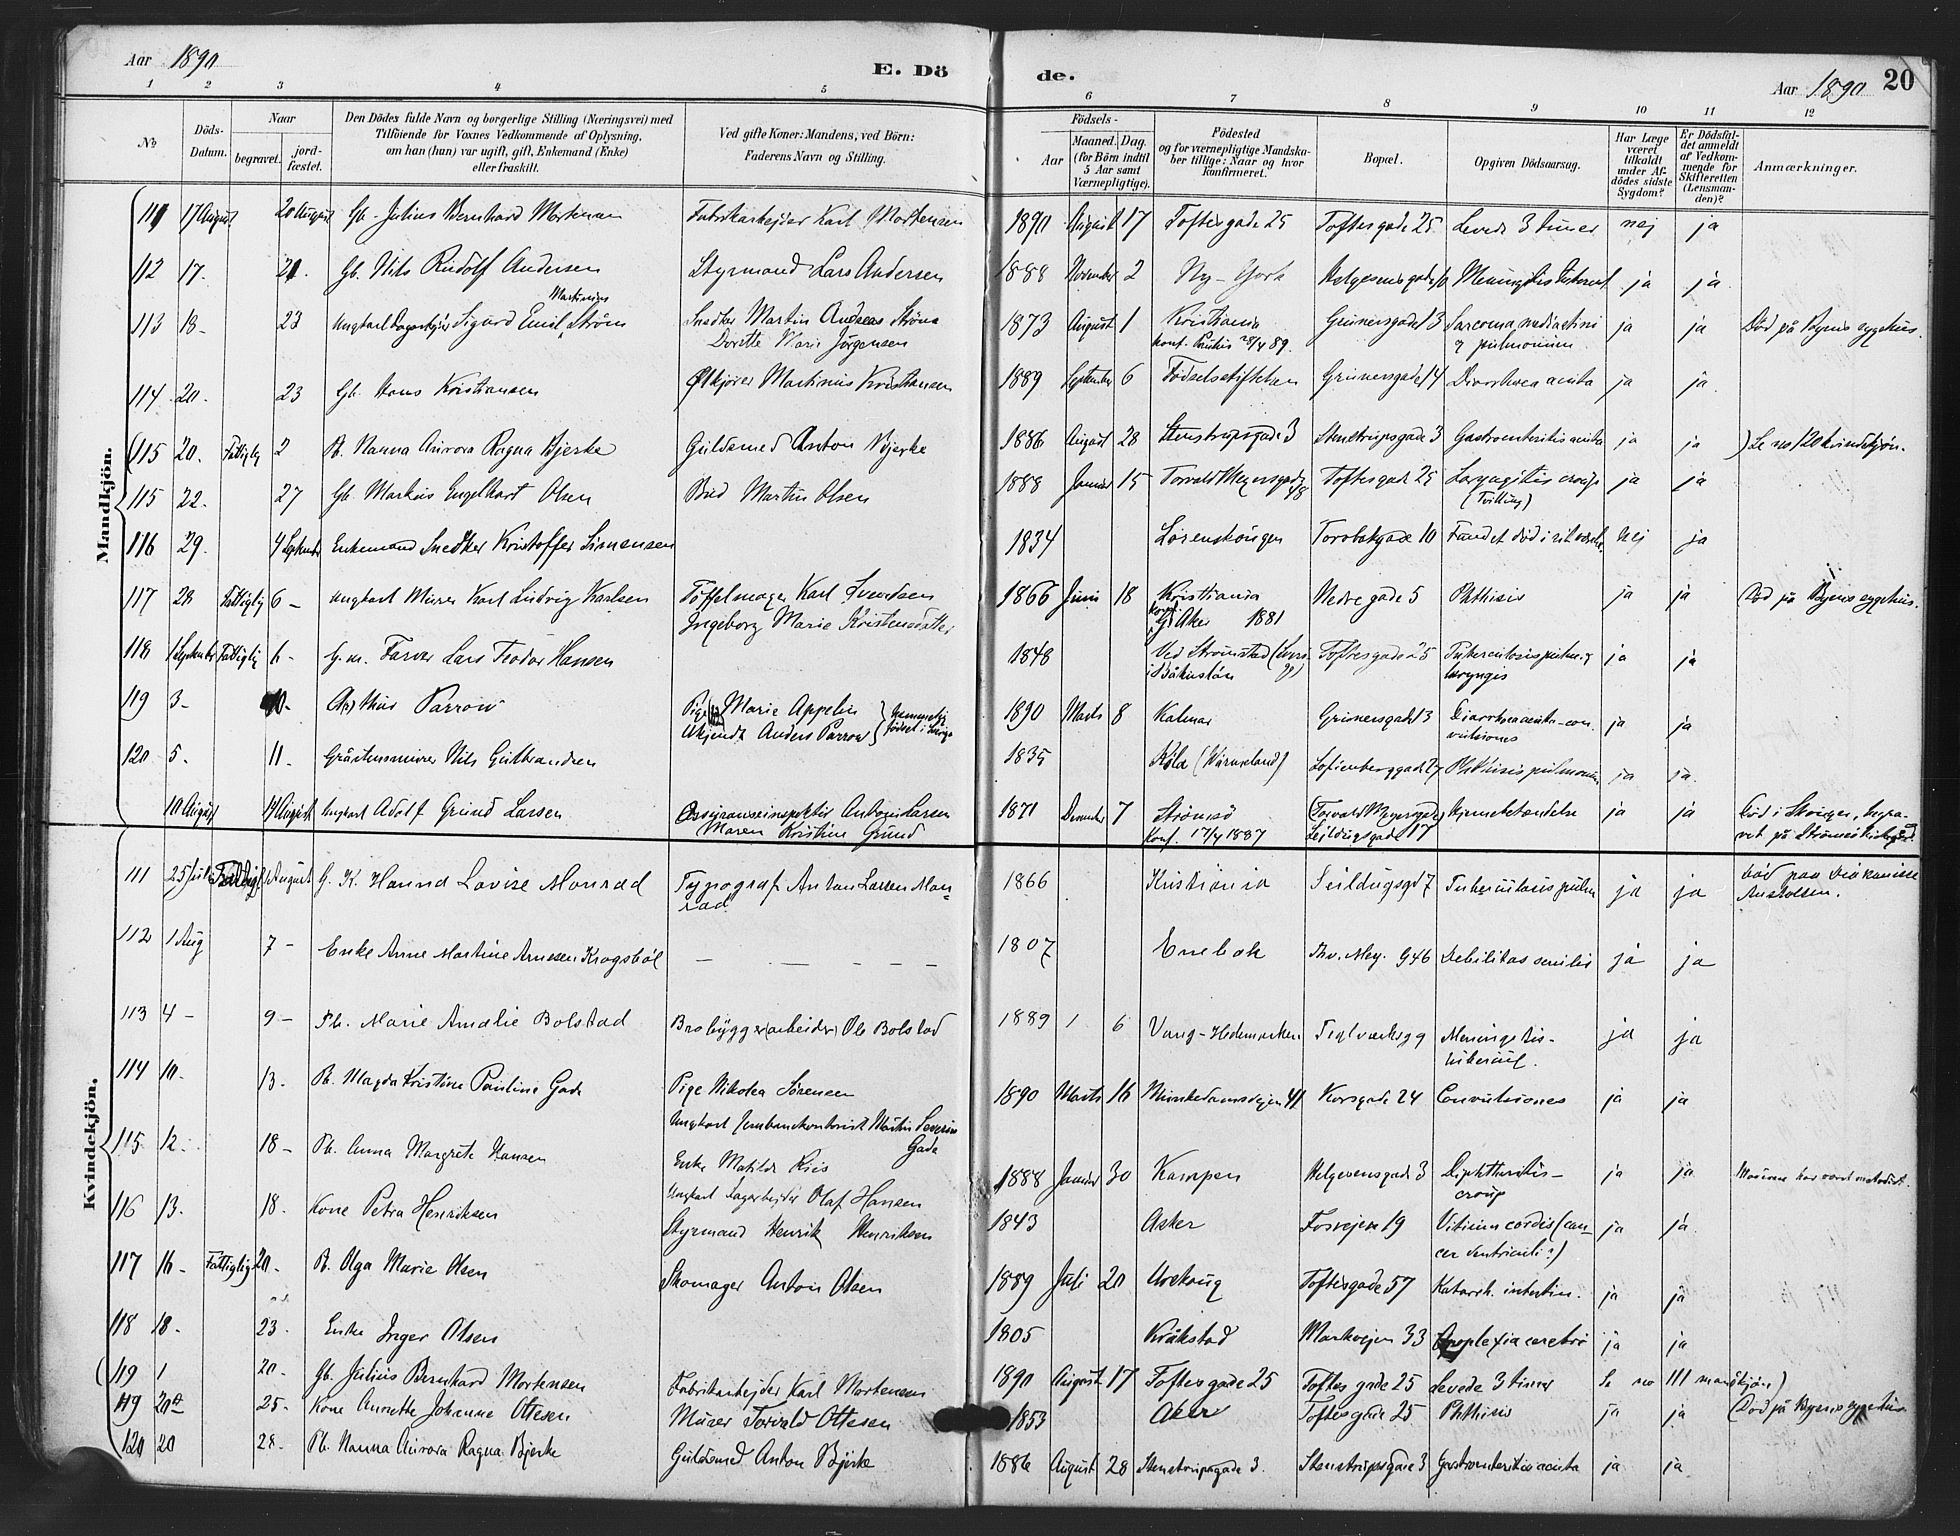 Aar 1890
E. Döde.
Aar 1890
20
1 2 3 4 5 6 7 8 9 10 11 12
No
Döds-Datum.
Naar
begravet.
jord-fæstet.
Den Dödes fulde Navn og borgerlige Stilling (Næringsvei) med
Tilföiende for Voxnes Vedkommende af Oplysning,
om han (hun) var ugift, gift, Enkemand (Enke)
eller fraskilt.
Ved gifte Koner: Mandens, ved Börn:
Faderens Navn og Stilling.
Födsels-
Aar
Maaned. Dag.
(for Börn indtil
5 Aar samt
Værnepligtige).
Födested
og for værnepligtige Mandska-
ber tillige: Naar og hvor
konfirmeret.
Bopæl.
Opgiven Dödsaarsag.
Har Læge
været
tilkaldt
under Af-
dödes sidste
Sygdom?
Er Dödsfal-
det anmeldt
af Vedkom-
mende for
Skifteretten
(Lensman-
den)?
Anmærkninger.
Mandkjön.
111 17 August 20 August Gb. Julius Bernhard Mortensen Fabrikarbejder Karl Mortensen 1890 August 17 Toftesgade 25 Toftesgade 25 Levede 3 timer nej ja
112 17. 21. Gb. Nils Rudolf Andersen Styrmand Lars Andersen 1888 November 2 Ny-York Helgesensgade 10 Meningitis tubercul ja ja
Martinius
113 18- 23 Ungkarl Sigurd Emil Ström Snedker Martin Andreas Ström 1873 August 1 Kristiania Grünersgade 13 Sarcoma mediastini ja ja Död på Byens sygehus.
Dorette Marie Jörgensen konf. Paulus 28/4 89. & pulmonum
114 20. 23 Gb. Hans Kristiansen Ølkjörer Martinius Kristiansen 1889 September 6 Födselsstiftelsen Grünersgade 14 Diarrhoea acuta ja ja
(115 20. Fattiglig 2 Pb. Nanna Aurora Ragna Bjerke Guldsmed Anton Bjerke 1886 August 28 Stenstrupsgade 3 Stenstrupsgade 3 Gastroenteritis acuta ja ja ) Se no 120 kvindekjön.
115 22. 27 Gb. Markus Engelhart Olsen Bud Martin Olsen 1888 Januar 15 Torvald Meyersgade 48 Toftesgade 25 Laryngitis croup ja ja
(Tvilling)
116 29. 4 September Enkemand Snedker Kristoffer Simensen 1834 Lörenskougen Torvbakgade 10 Fundet död i sit værelse nej ja
117 28 Fattiglig 6- Ungkarl Murer Karl Ludvig Karlsen Töffelmager Karl Svendsen 1866 Juni 18 Kristiania Nedre gade 5 Phthisis ja ja Död på Byens sygehus.
Ingeborg Marie Kristensdatter Aker 1881
118 1 September Fattiglig 6- G. m. Farver Lars Teodor Hansen 1848 Ved Strömstad Toftesgade 25 Tuberculosis pulm. & ja ja
laryngis
119 3- 10- Arthur Parrow Pige Marie Appelin 1890 Marts 8 Kalmar Grünersgade 13 Diarrhoea acuta-con ja ja
Anders Parrow vulsiones
120 5. 11. Gråstensmurer Nils Gulbrandsen 1835 Köla (Wärmeland) Sofienberggade 27 Phthisis pulmonum ja ja
10 August 14 August Ungkarl Adolf Grund Larsen Assuranseinspektör Anton Larsen 1871 December 7 Strömsö (Torvald Meyersgade) Hjernebetændelse ja ja Död i Skoger, begra-
Maren Kristine Grund Konf. 17/4 1887 Seilduksgade 17 vet på Strömsö Kirkegård
Kvindekjön.
111 25 Juli Fattiglig August G. K. Hanna Lovise Monrad Typograf Anton Larsen Mon- 1866 Kristiania Seildugsgd 7 Tuberculosis pulm ja ja död paa Diakonisse
rad Anstalten.
112 1 Aug 7- Enke Anne Martine Arnesen Krogsböl — — — — — 1807 Enebak Thv. Mey. G 46 Debilitas senilis ja ja
113 4- 9- Pb. Marie Amalie Bolstad Brobygger (arbeider) Ole Bolstad 1889 1 6 Vang-Hedemarken Teglverksg 9 Meningitis- ja ja
tubercul.
114 10. 13. Pb. Magda Kristine Pauline Gade Pige Nikolea Sörensen 1890 Marts 16 Munkedamsvejen 41 Korsgade 24 Convulsiones ja ja
Ungkarl Jernbanekontorist Martin Severin
Gade
115 12. 18- Pb. Anna Margrete Hansen Enke Matilde Riis 1888 Januar 30 Kampen Helgesensgade 3 Diphtheritis- ja ja Moderen har været metodist.
Ungkarl Olaf Hansen croup
116 13. 18. Kone Petra Henriksen Styrmand Henrik Henriksen 1843 Asker Fosvejen 19 Vitium cordis (can- ja ja
cer ventriculi?)
117 16- Fattiglig 20- Pb. Olga Marie Olsen Skomager Anton Olsen 1889 Juli 20 Toftesgade 57 Katarrh. intestin. ja ja
118 18. 23. Enke Inger Olsen 1805 Kråkstad Markvejen 33 Apoplexia cerebri ja ja
(119 1 20- Gb. Julius Bernhard Mortensen Fabrikarbejder Karl Mortensen 1890 August 17 Toftesgade 25 Toftesgade 25 Levede 3 timer Se no 111 mandkjön)
119 20 25- Kone Annette Johanne Ottesen Murer Torvald Ottesen 1853 Aker Toftesgade 25 Phthisis ja ja Död på Byens sygehus
120 20 28- Pb. Nanna Aurora Ragna Bjerke Guldsmed Anton Bjerke 1886 August 28 Stenstrupsgade 3. Stenstrupsgade 3 Gastroenteritis acuta ja ja